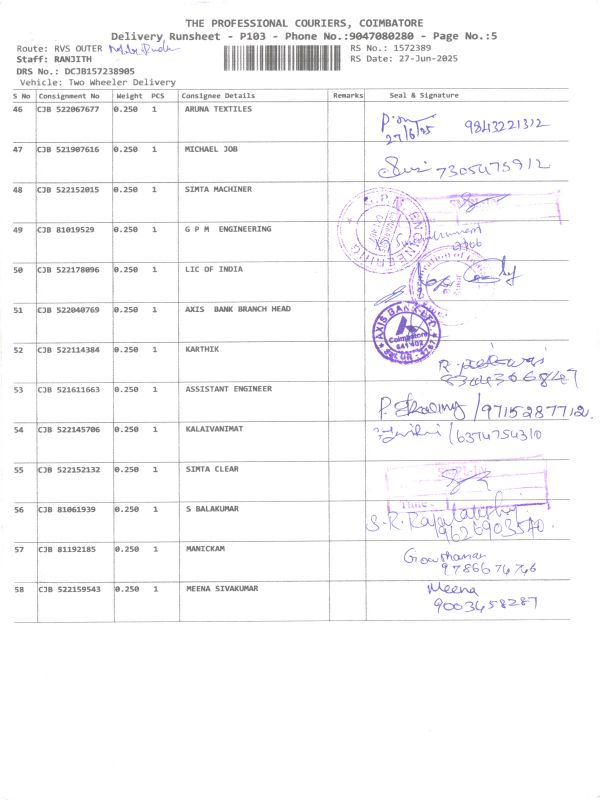 THE PROFESSIONAL COURIERS, COIMBATORE
Delivery Runsheet - P103 - Phone No.:9047080280 - Page No.:5
Route: RVS OUTER
RS No.: 1572389
Staff: RANJITH
RS Date: 27-Jun-2025
DRS No.: DCJB157238905
Vehicle: Two Wheeler Delivery
S No Consignment No Weight PCS Consignee Details Remarks Seal & Signature
46 CJB 522067677 0.250 1 ARUNA TEXTILES
27/6/25 9843221312
47 CJB 521907616 0.250 1 MICHAEL JOB
7305475912
48 CJB 522152015 0.250 1 SIMTA MACHINER
49 CJB 81019529 0.250 1 G P M ENGINEERING
G.P.M ENGINEERING
50 CJB 522178096 0.250 1 LIC OF INDIA
51 CJB 522040769 0.250 1 AXIS BANK BRANCH HEAD
AXIS BANK LTD
Coimbatore
641 402
52 CJB 522114384 0.250 1 KARTHIK
53 CJB 521611663 0.250 1 ASSISTANT ENGINEER
/9715287712
54 CJB 522145706 0.250 1 KALAIVANIMAT
/6374754310
55 CJB 522152132 0.250 1 SIMTA CLEAR
Time
56 CJB 81061939 0.250 1 S BALAKUMAR
S.R.
57 CJB 81192185 0.250 1 MANICKAM
Gowthaman
9786674766
58 CJB 522159543 0.250 1 MEENA SIVAKUMAR
Meena
9003458287